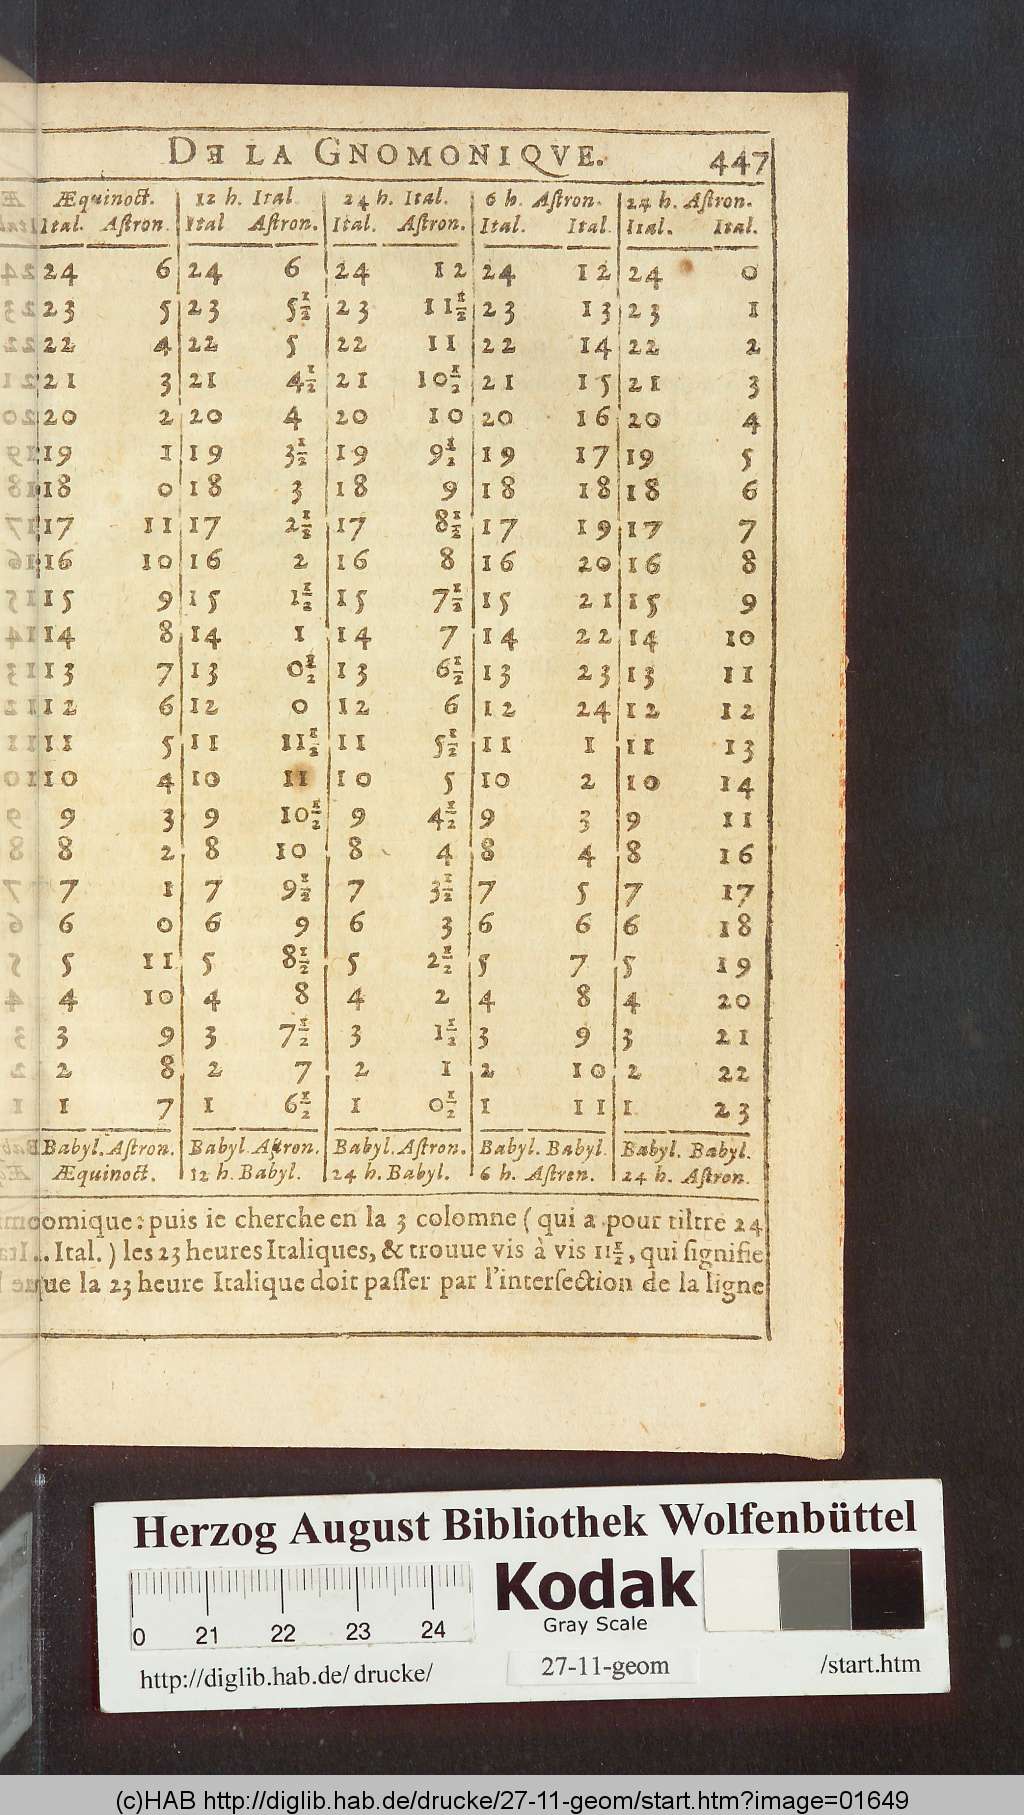 DE LA GNOMONIQVE. 447
Æquinoct. 12 h. Ital. 24 h. Ital. 6 h. Aſtron. 24 h. Aſtron.
Ital. Aſtron. Ital Aſtron. Ital. Aſtron. Ital. Ital. Ital. Ital.
24 6 24 6 24 12 24 12 24 0
23 5 23 5½ 23 11½ 23 13 23 1
22 4 22 5 22 11 22 14 22 2
21 3 21 4½ 21 10½ 21 15 21 3
20 2 20 4 20 10 20 16 20 4
19 1 19 3½ 19 9½ 19 17 19 5
18 0 18 3 18 9 18 18 18 6
17 11 17 2½ 17 8½ 17 19 17 7
16 10 16 2 16 8 16 20 16 8
15 9 15 1½ 15 7½ 15 21 15 9
14 8 14 1 14 7 14 22 14 10
13 7 13 0½ 13 6½ 13 23 13 11
12 6 12 0 12 6 12 24 12 12
11 5 11 11½ 11 5½ 11 1 11 13
10 4 10 11 10 5 10 2 10 14
9 3 9 10½ 9 4½ 9 3 9 11
8 2 8 10 8 4 8 4 8 16
7 1 7 9½ 7 3½ 7 5 7 17
6 0 6 9 6 3 6 6 6 18
5 11 5 8½ 5 2½ 5 7 5 19
4 10 4 8 4 2 4 8 4 20
3 9 3 7½ 3 1½ 3 9 3 21
2 8 2 7 2 1 2 10 2 22
1 7 1 6½ 1 0½ 1 11 1 23
Babyl. Aſtron. Babyl. Aſtron. Babyl. Aſtron. Babyl. Babyl. Babyl. Babyl.
Æquinoct. 12 h. Babyl. 24 h. Babyl. 6 h. Aſtren. 24 h. Aſtron.
omique: puis ie cherche en la 3 colomne ( qui a pour tiltre 24
... Ital. ) les 23 heures Italiques, & trouue vis à vis 11½, qui ſignifie
que la 23 heure Italique doit paſſer par l'interſection de la ligne
Herzog August Bibliothek Wolfenbüttel
Kodak
Gray Scale
0 21 22 23 24
http://diglib.hab.de/ drucke/ 27-11-geom /start.htm
(c)HAB http://diglib.hab.de/drucke/27-11-geom/start.htm?image=01649